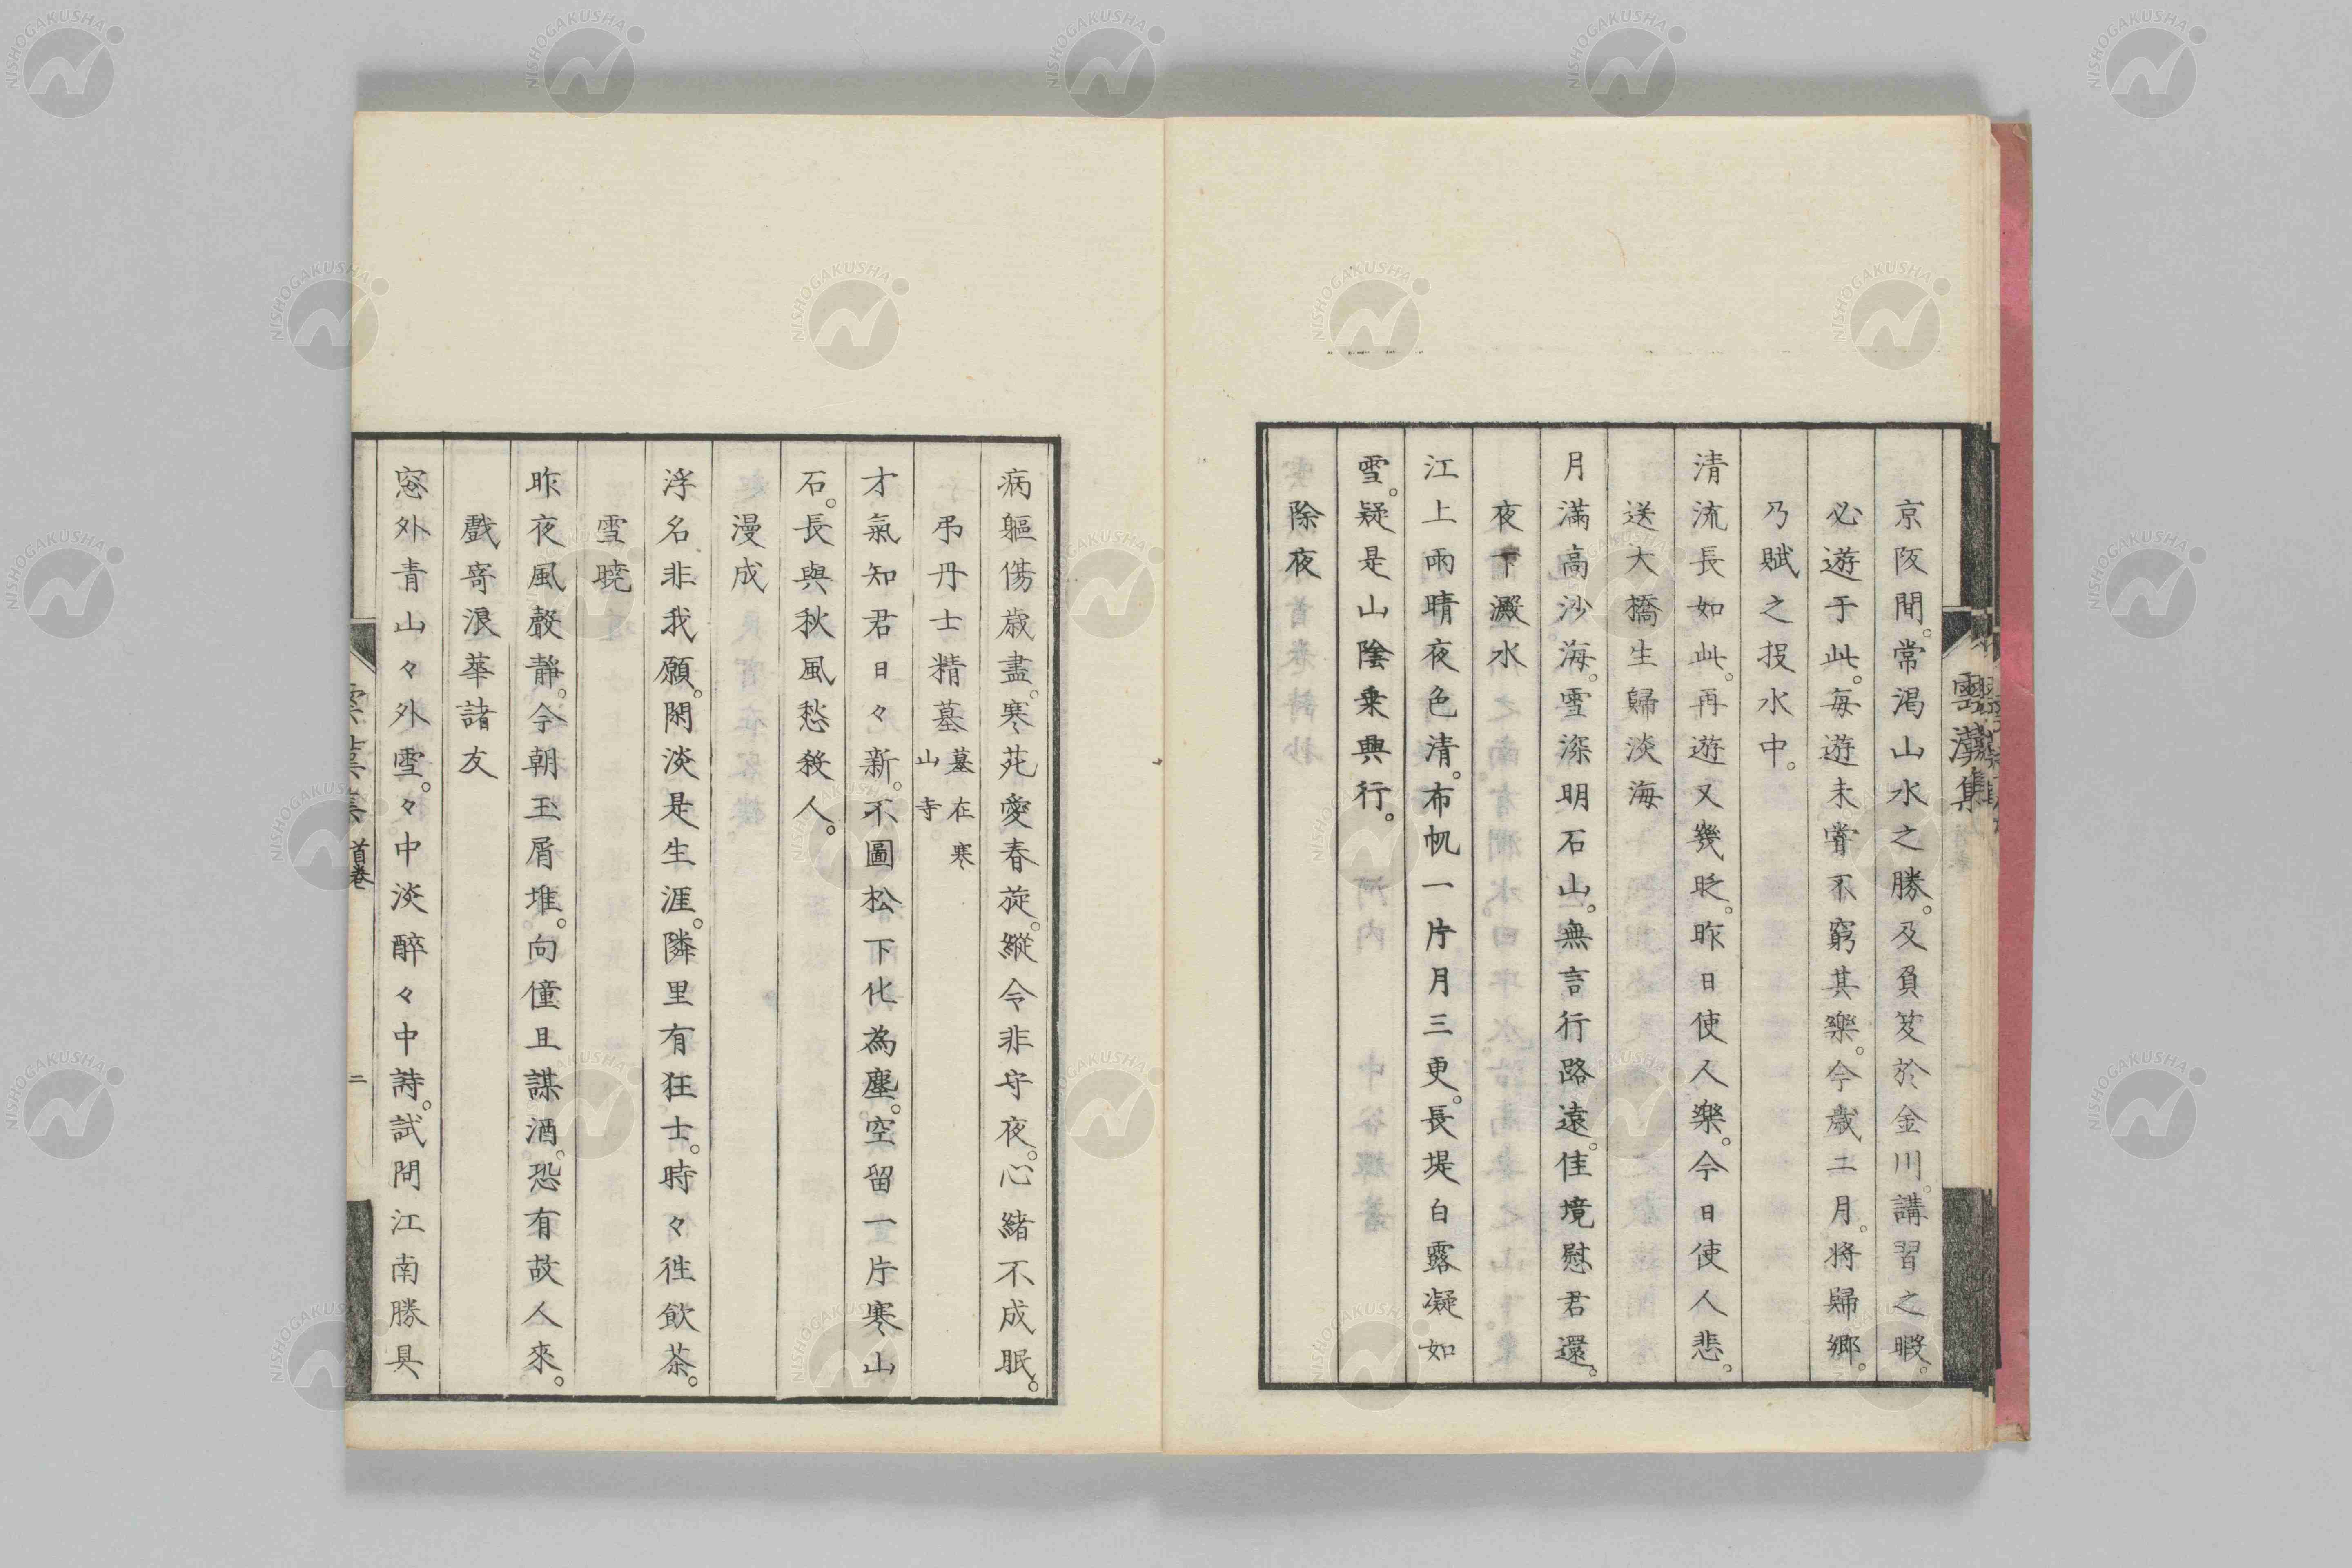 京阪間。常渇山水之勝。及負笈於金川。講習之暇。
必遊于此。毎遊未嘗不窮其樂。今歳二月。将歸郷。
乃賦之投水中。
清流長如此。再遊又幾旼。昨日使人樂。今日使人悲。
送大橋生歸淡海
月滿高沙海。雪深明石山。無言行路遠。佳境慰君還。
夜下澱水
江上雨晴夜色清。布帆一片月三更。長堤白露凝如
雪。疑是山陰乗興行。
除夜
病軀傷歳盡。寒苑愛春旋。縱令非守夜。心緒不成眠。
弔丹士精墓 墓在寒山寺
才氣知君日々新。不圖松下化為塵。空留一片寒山
石。長與秋風愁殺人。
漫成
浮名非我願。閑淡是生涯。隣里有狂士。時々徃飲茶。
雪曉
昨夜風聲靜。今朝玉屑堆。向僮且謀酒。恐有故人來。
戲寄浪華諸友
窓外青山々外雪。々中淡醉々中詩。試問江南勝具
集 首巻
二
NISHOGAKUSHA